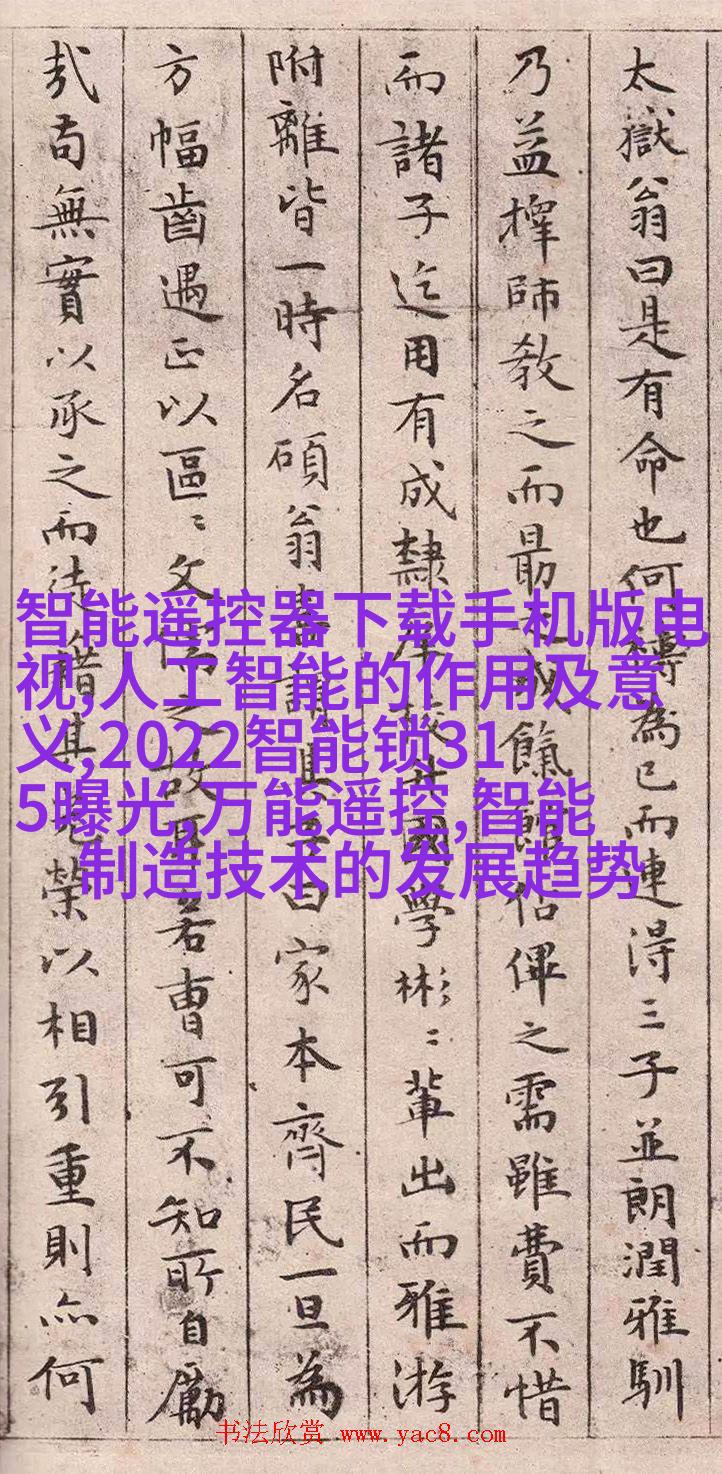 太嶽翁曰是有命也何為已而連得三子並朗潤雅馴
乃益擇師教之而最成餼館佔俾之需雖費不惜
而諸子迄用有成隸庠校升國學彬〻輩出而雅游
附離皆一時名碩翁喜謂其子曰家本齊民一旦為
方幅齒遇正以區〻文儒之故耳若曹可不知所自勵
哉苟無實以承之而徒藉其寵榮以相引重則亦何
智能遥控器下载手机版电
视,人工智能的作用及意
义,2022智能锁31
5曝光,万能遥控,智能
制造技术的发展趋势
书法欣赏 www.yac8.com